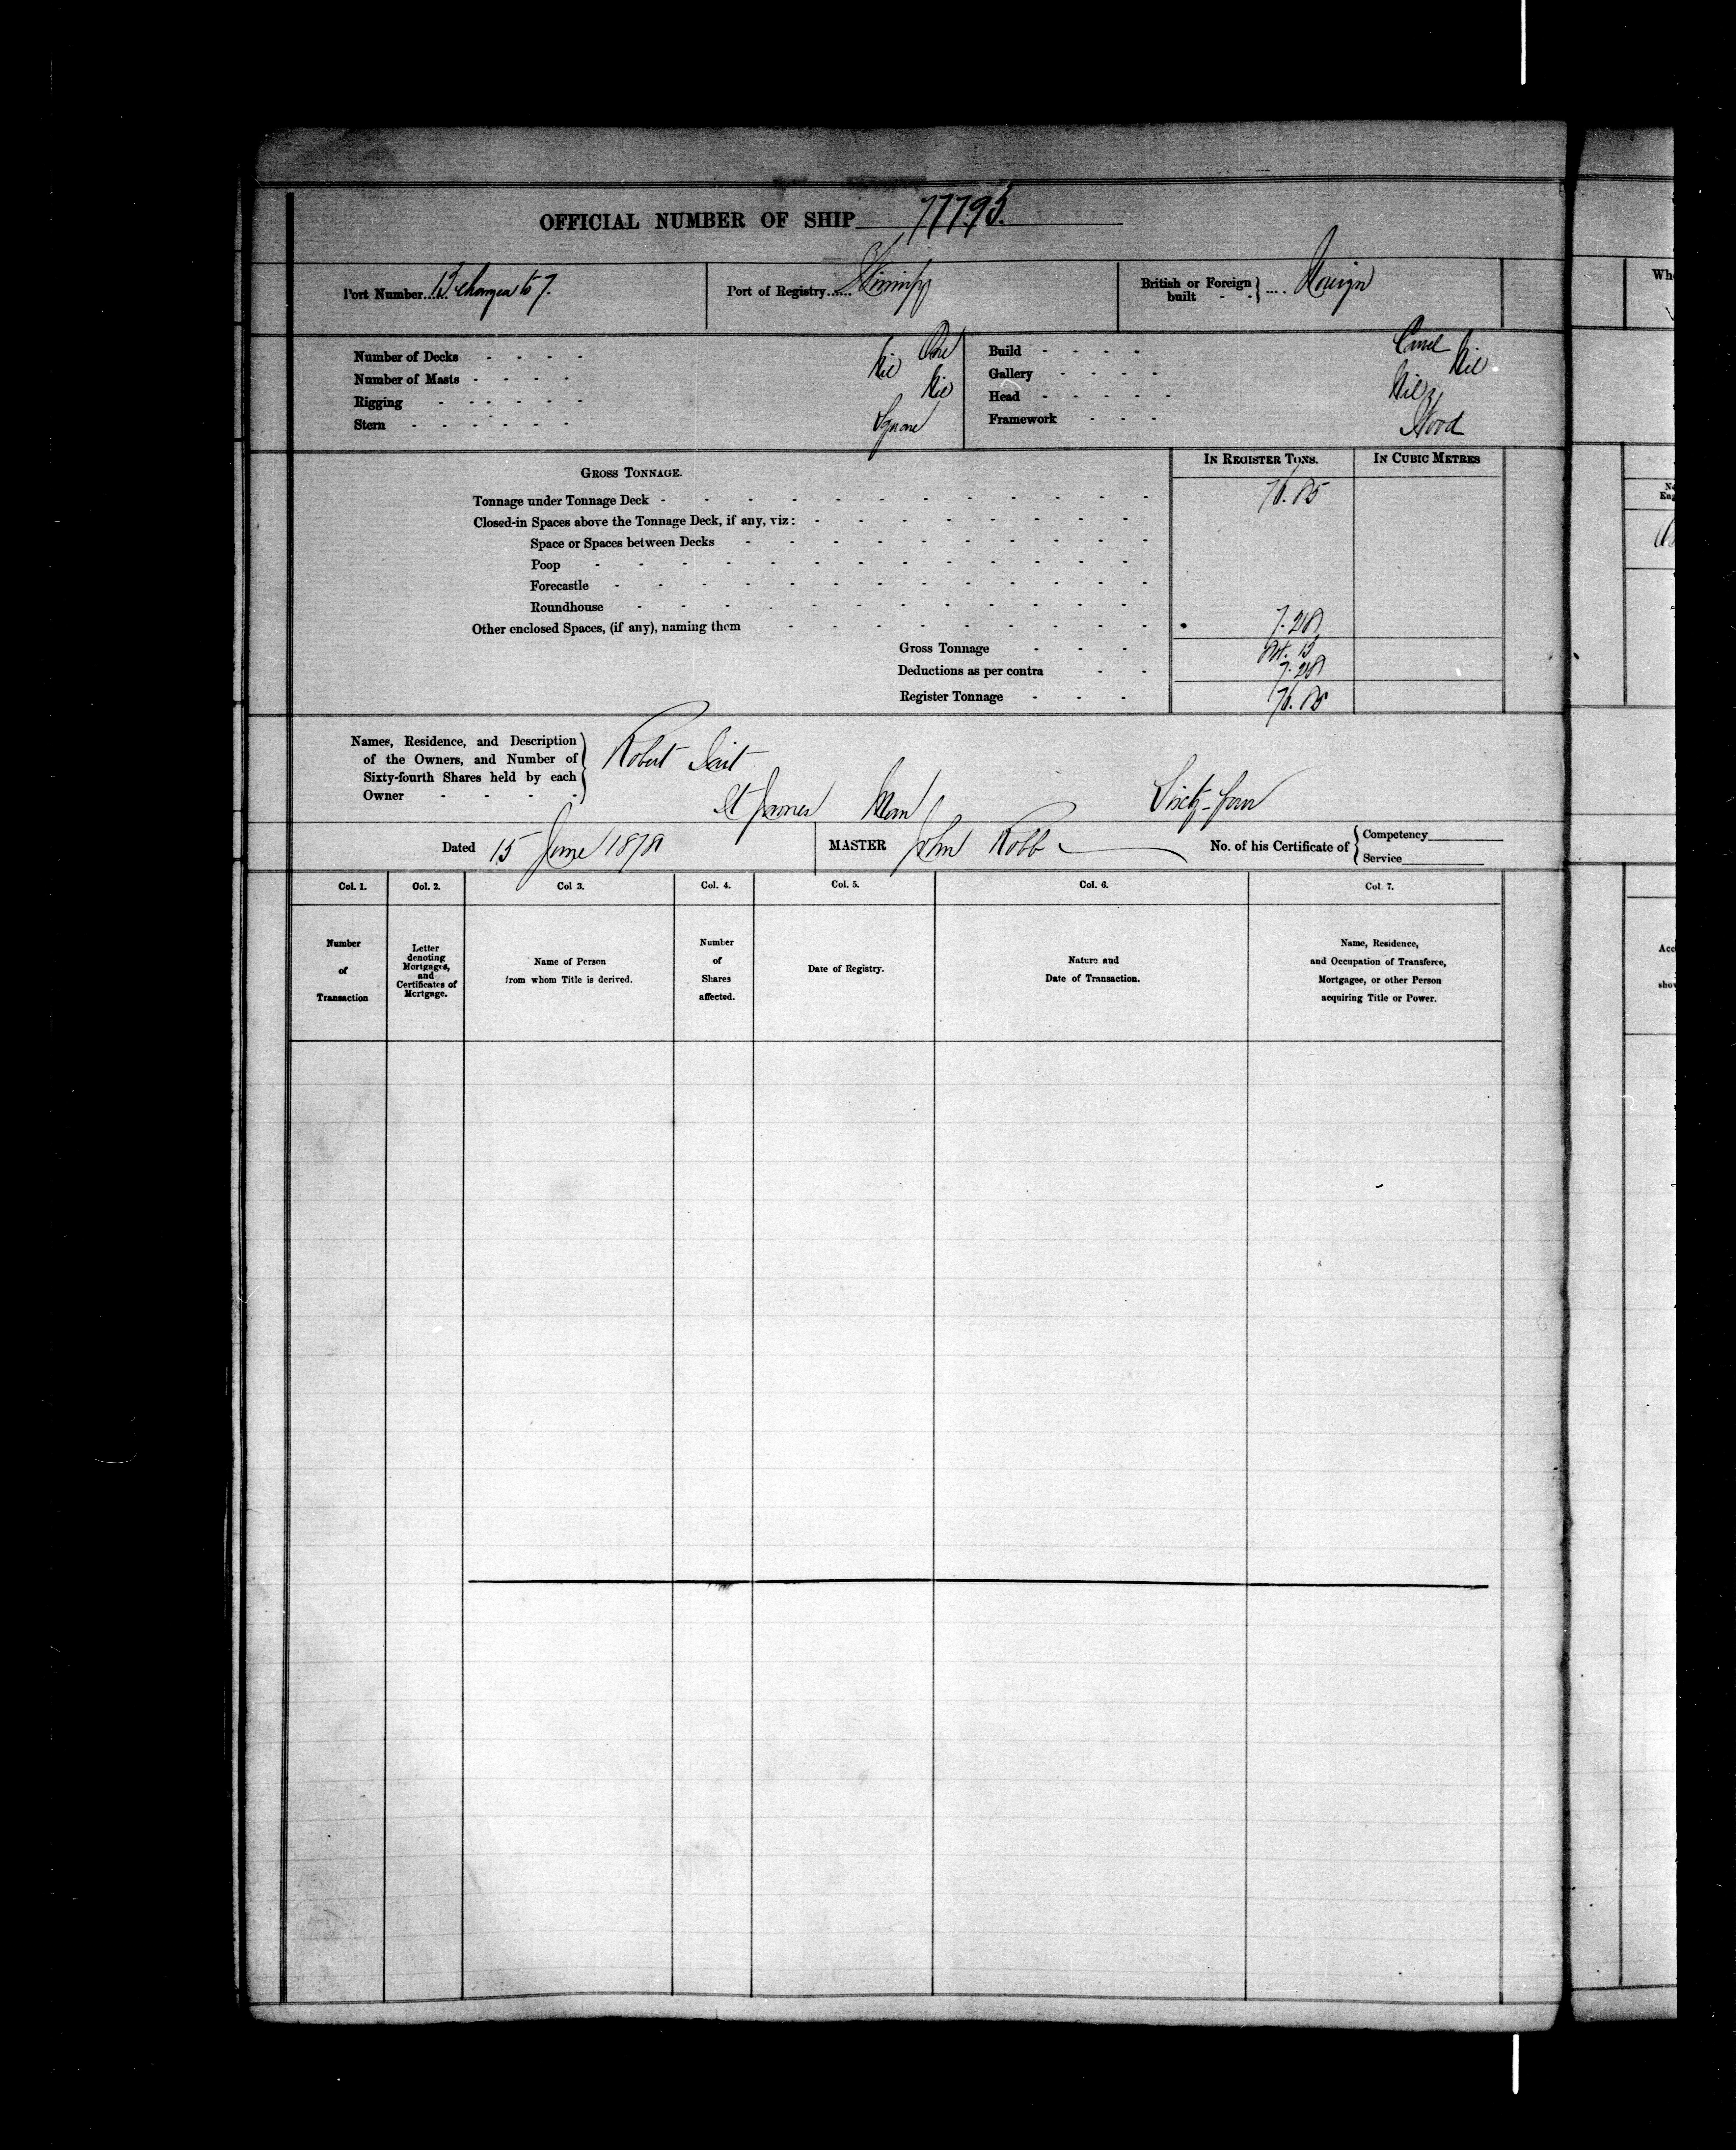 OFFICIAL NUMBER OF SHIP 77793.
Port Number....13 changed to 7.
Port of Registry...... Winnipeg
British or Foreign built - - } .... Foreign
Number of Decks - - - - One
Number of Masts - - - - Nil
Rigging - - - - - - Nil
Stern - - - - - - Square
Build - - - - Carvel
Gallery - - - - Nil
Head - - - - - Nil
Framework - - - Wood
GROSS TONNAGE.
IN REGISTER TONS.
IN CUBIC METRES
Tonnage under Tonnage Deck - 76.85
Closed-in Spaces above the Tonnage Deck, if any, viz:
Space or Spaces between Decks
Poop
Forecastle
Roundhouse
Other enclosed Spaces, (if any), naming them 7.28
Gross Tonnage - - - 84.13
Deductions as per contra - - 7.28
Register Tonnage - - - 76.85
Names, Residence, and Description
of the Owners, and Number of
Sixty-fourth Shares held by each
Owner - - - -
Robert Tait
St James Man Sixty-four
Dated 15 June 1878
MASTER John Robb
No. of his Certificate of { Competency
Service
Col. 1. Col. 2. Col 3. Col. 4. Col. 5. Col. 6. Col. 7.
Number
of
Transaction
Letter
denoting
Mortgages,
and
Certificates of
Mortgage.
Name of Person
from whom Title is derived.
Number
of
Shares
affected.
Date of Registry.
Nature and
Date of Transaction.
Name, Residence,
and Occupation of Transferee,
Mortgagee, or other Person
acquiring Title or Power.